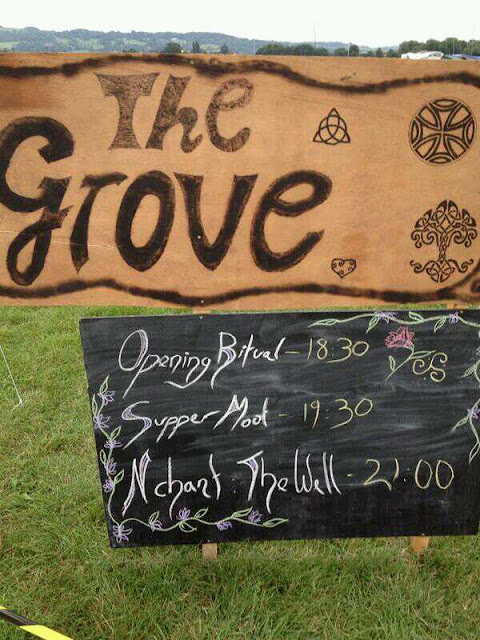 The
Grove
Opening Ritual - 18:30
Supper Moot - 19:30
Nchant : The Well - 21:00